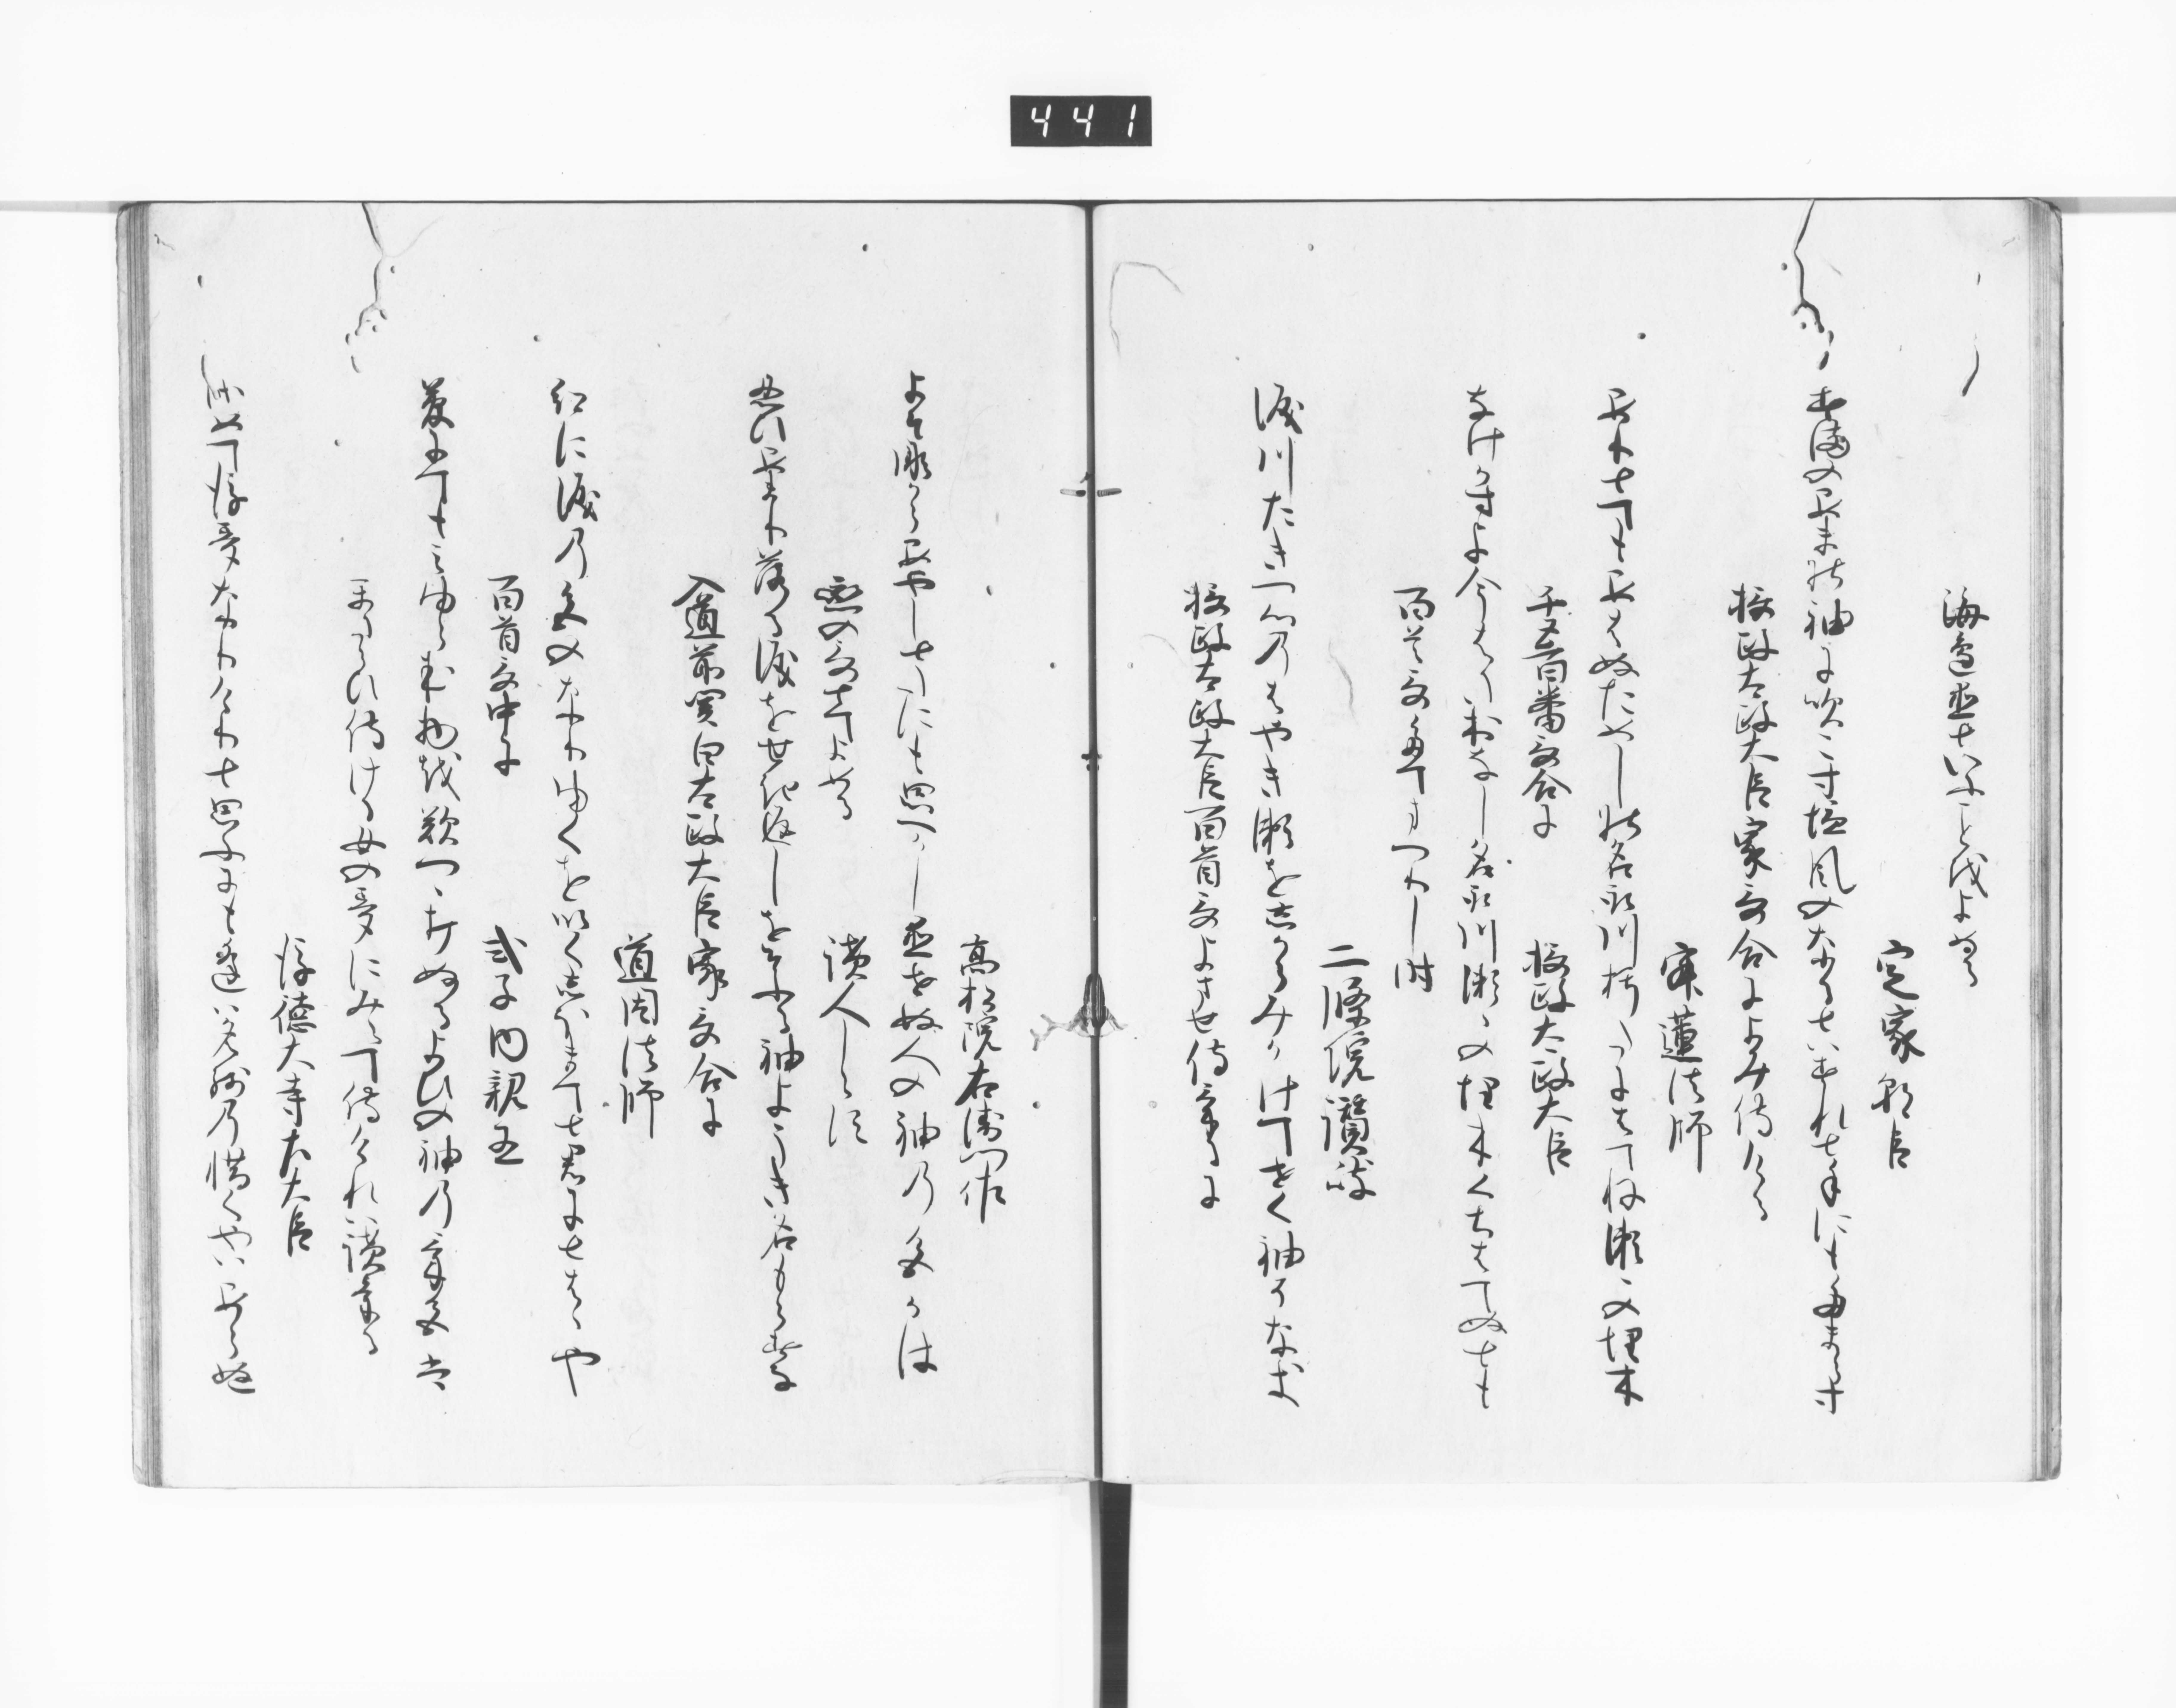 441
海邊恋といふことをよめる
定家朝臣
すまのあまの袖に吹こす塩風のなるとはすれと手にもたまらす
摂政太政大臣家哥合によみ侍ける
寂蓮法師
ありとてもあはぬためしの名取川朽たにはてね瀬ゝの埋木
千五百番哥合に
摂政太政大臣
なけかすよ今はたおなし名取川瀬ゝの埋木くちはてぬとも
百首哥たてまつりし時
二條院讃岐
涙川たきつ心のはやき瀬をしからみかけてせく袖そなき
摂政太政大臣百首哥よませ侍けるに
高松院右衛門佐
よそなからあやしとたにも思へかし恋せぬ人の袖の色かは
恋の哥とてよめる
讀人しらす
忍ひあまり落る涙をせき返しをさふる袖ようき名もらすな
入道前関白太政大臣家哥合に
道因法師
紅に涙の色のなりゆくをいくしほまてと君にとはゝや
百首哥中に
式子内親王
夢にても見ゆらむ物を歎つゝうちぬるよひの袖のけしきは
かたらひ侍ける女の夢にみえて侍けれは讀ける
後徳大寺左大臣
さめて後夢なりけりと思ふにも逢は名残の惜くやはあらぬ